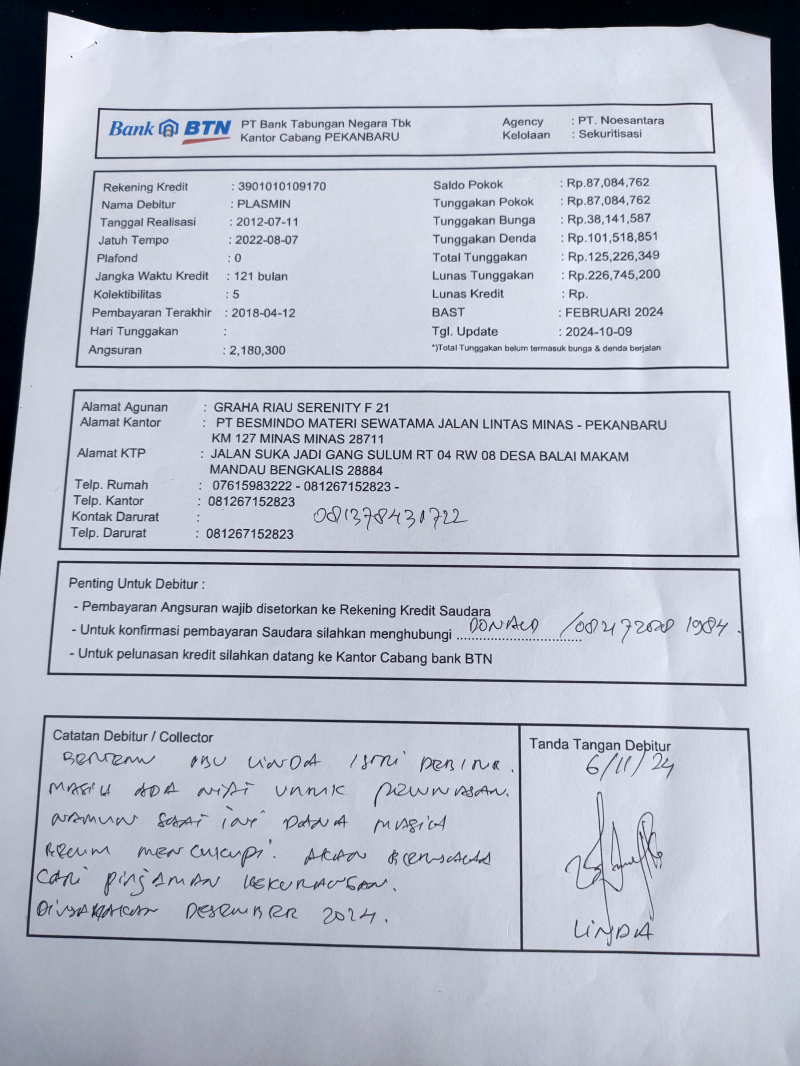 Bank BTN
PT Bank Tabungan Negara Tbk
Kantor Cabang PEKANBARU
Agency : PT. Noesantara
Kelolaan : Sekuritisasi
Rekening Kredit : 3901010109170
Nama Debitur : PLASMIN
Tanggal Realisasi : 2012-07-11
Jatuh Tempo : 2022-08-07
Plafond : 0
Jangka Waktu Kredit : 121 bulan
Kolektibilitas : 5
Pembayaran Terakhir : 2018-04-12
Hari Tunggakan :
Angsuran : 2,180,300
Saldo Pokok : Rp.87,084,762
Tunggakan Pokok : Rp.87,084,762
Tunggakan Bunga : Rp.38,141,587
Tunggakan Denda : Rp.101,518,851
Total Tunggakan : Rp.125,226,349
Lunas Tunggakan : Rp.226,745,200
Lunas Kredit : Rp.
BAST : FEBRUARI 2024
Tgl. Update : 2024-10-09
*)Total Tunggakan belum termasuk bunga & denda berjalan
Alamat Agunan : GRAHA RIAU SERENITY F 21
Alamat Kantor : PT BESMINDO MATERI SEWATAMA JALAN LINTAS MINAS - PEKANBARU
KM 127 MINAS MINAS 28711
Alamat KTP : JALAN SUKA JADI GANG SULUM RT 04 RW 08 DESA BALAI MAKAM
MANDAU BENGKALIS 28884
Telp. Rumah : 07615983222 - 081267152823 -
Telp. Kantor : 081267152823
Kontak Darurat : 081378431722
Telp. Darurat : 081267152823
Penting Untuk Debitur :
- Pembayaran Angsuran wajib disetorkan ke Rekening Kredit Saudara
- Untuk konfirmasi pembayaran Saudara silahkan menghubungi DONALD
- Untuk pelunasan kredit silahkan datang ke Kantor Cabang bank BTN
Catatan Debitur / Collector
BERTEMU IBU LINDA ISTRI DEBITUR.
MASIH ADA NIAT UNTUK PELUNASAN.
NAMUN SAAT INI DANA MASIH
BELUM MENCUKUPI. AKAN BERUSAHA
CARI PINJAMAN KEKURANGAN.
DIUSAHAKAN DESEMBER 2024.
Tanda Tangan Debitur
6/11/24
LINDA